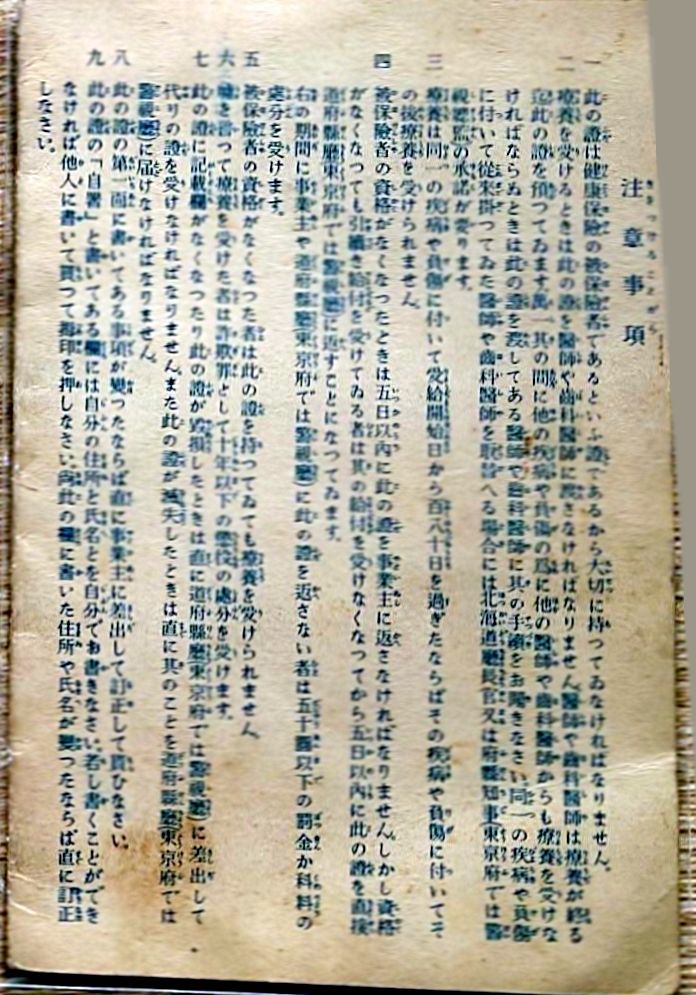 注意事項
一 此の證は健康保險の被保險者であるといふ證であるから大切に持つてゐなければなりません。
二 療養を受けるときは此の證を醫師や齒科醫師に渡さなければなりません、醫師や齒科醫師は療養が終る
迄此の證を預つてゐます、萬一其の間に他の疾病や負傷の爲に他の醫師や齒科醫師からも療養を受けな
ければならぬときは此の證を渡してある醫師や齒科醫師に其の手續をお聞きなさい、同一の疾病や負傷
に付いて從來掛つてゐた醫師や齒科醫師を取替へる場合には北海道廳長官又は府縣知事東京府では警
視總監の承諾が要ります。
三 療養は同一の疾病や負傷に付いて受給開始日から百八十日を過ぎたならばその疾病や負傷に付いてそ
の後療養を受けられません。
四 被保險者の資格がなくなつたときは五日以內に此の證を事業主に返さなければなりません、しかし資格
がなくなつても引續き給付を受けてゐる者は其の給付を受けなくなつてから五日以內に此の證を直接
道府縣廳(東京府では警視廳)に返すことになつてゐます。
右の期間に事業主や道府縣廳(東京府では警視廳)に此の證を返さない者は五十圓以下の罰金か科料の
處分を受けます。
五 被保險者の資格がなくなつた者は此の證を持つてゐても療養を受けられません。
六 噓を言つて療養を受けた者は詐欺罪として十年以下の懲役の處分を受けます。
七 此の證に記載欄がなくなつたり此の證が毀損したときは直に道府縣廳(東京府では警視廳)に差出して
代りの證を受けなければなりません、また此の證が滅失したときは直に其のことを道府縣廳(東京府では
警視廳)に届けなければなりません。
八 此の證の第一面に書いてある事項が變つたならば直に事業主に差出して訂正して貰ひなさい。
九 此の證の「自署」と書いてある欄には自分の住所と氏名とを自分でお書きなさい、若し書くことができ
なければ他人に書いて貰つて拇印を押しなさい、尙此の欄に書いた住所や氏名が變つたならば直に訂正
しなさい。